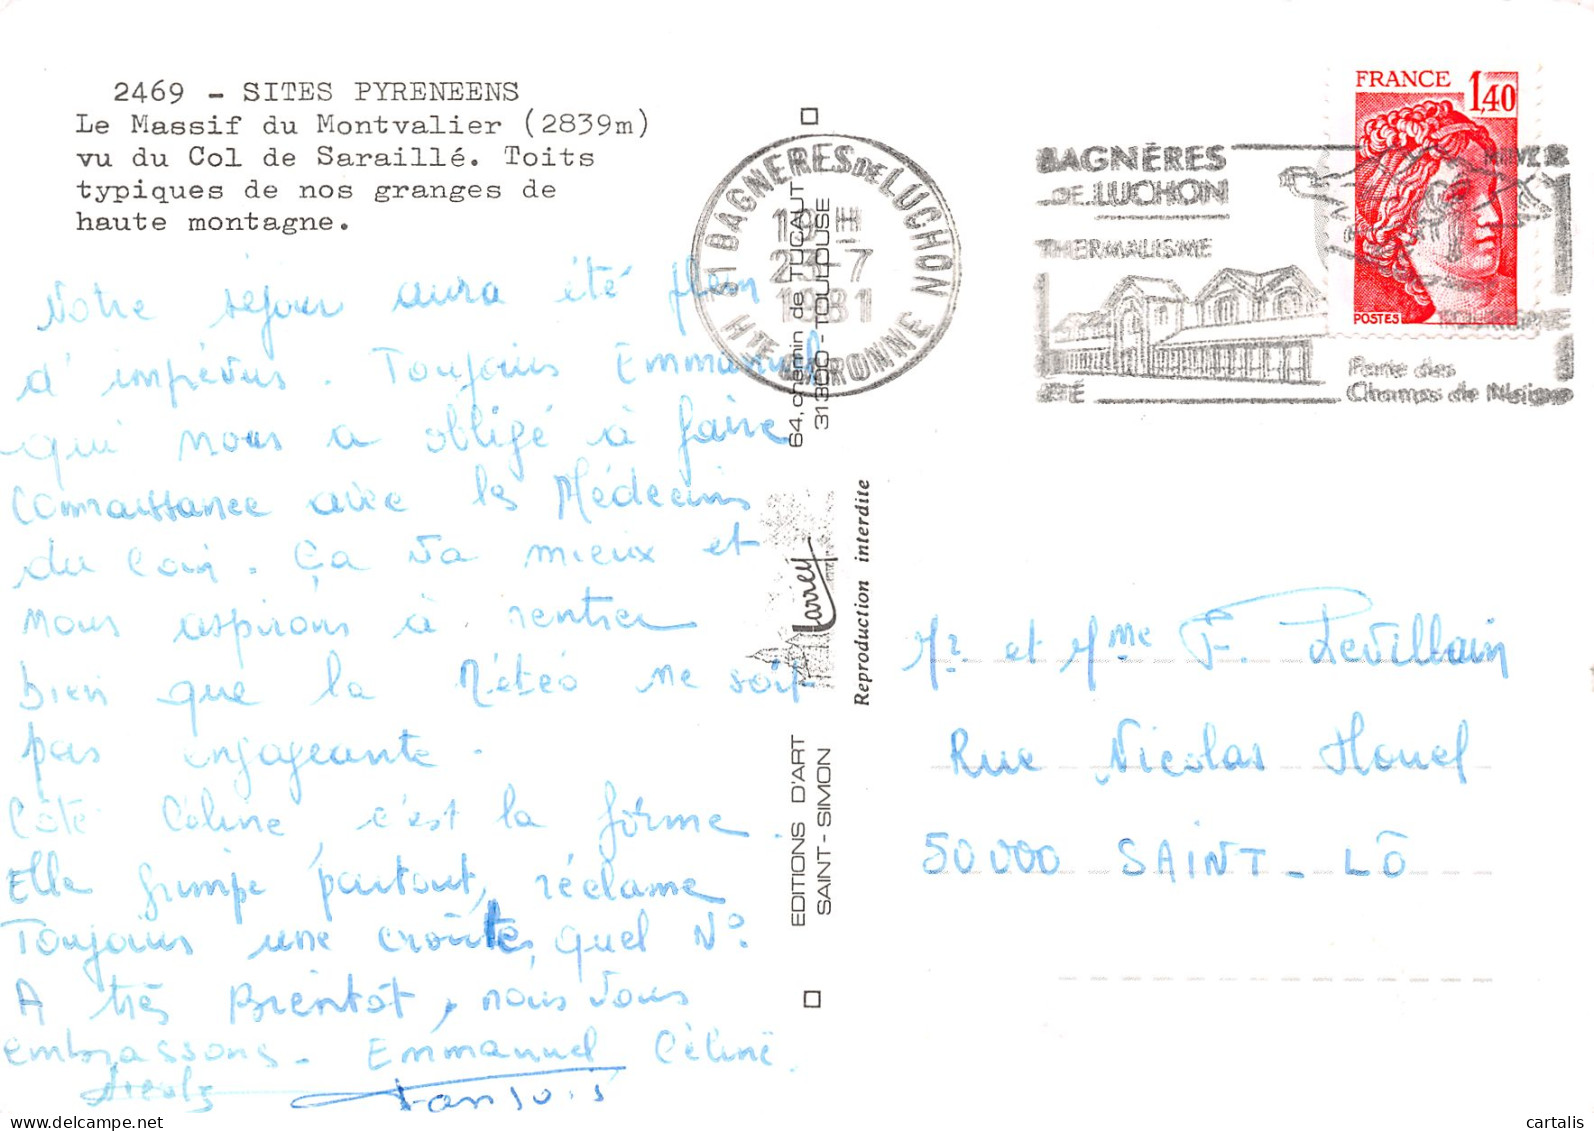 2469 - SITES PYRENEENS
Le Massif du Montvalier (2839m)
vu du Col de Saraillé. Toits
typiques de nos granges de
haute montagne.
Notre séjour aura été plein
d'imprévus. Toujours Emmanuel
qui nous a obligé à faire
connaissance avec les Médecins
du coin. Ça va mieux et
nous aspirons à rentrer
bien que la Météo ne soit
pas engageante.
Côté Céline c'est la forme.
Elle grimpe partout, réclame
Toujours une croûte, quel N°.
A très Bientôt, nous vous
embrassons. Emmanuel Céline
31 BAGNERES DE LUCHON
19H
23-7
1981
HTE GARONNE
64, chemin de TUCAUT
31300 - TOULOUSE
Larrey
Reproduction interdite
EDITIONS D'ART
SAINT-SIMON
FRANCE 1,40
POSTES
BAGNÈRES
DE LUCHON
HIVER
THERMALISME
ÉTÉ
Mr et Mme F. Levillain
Rue Nicolas Houel
50000 SAINT-LÔ
cartalis.com